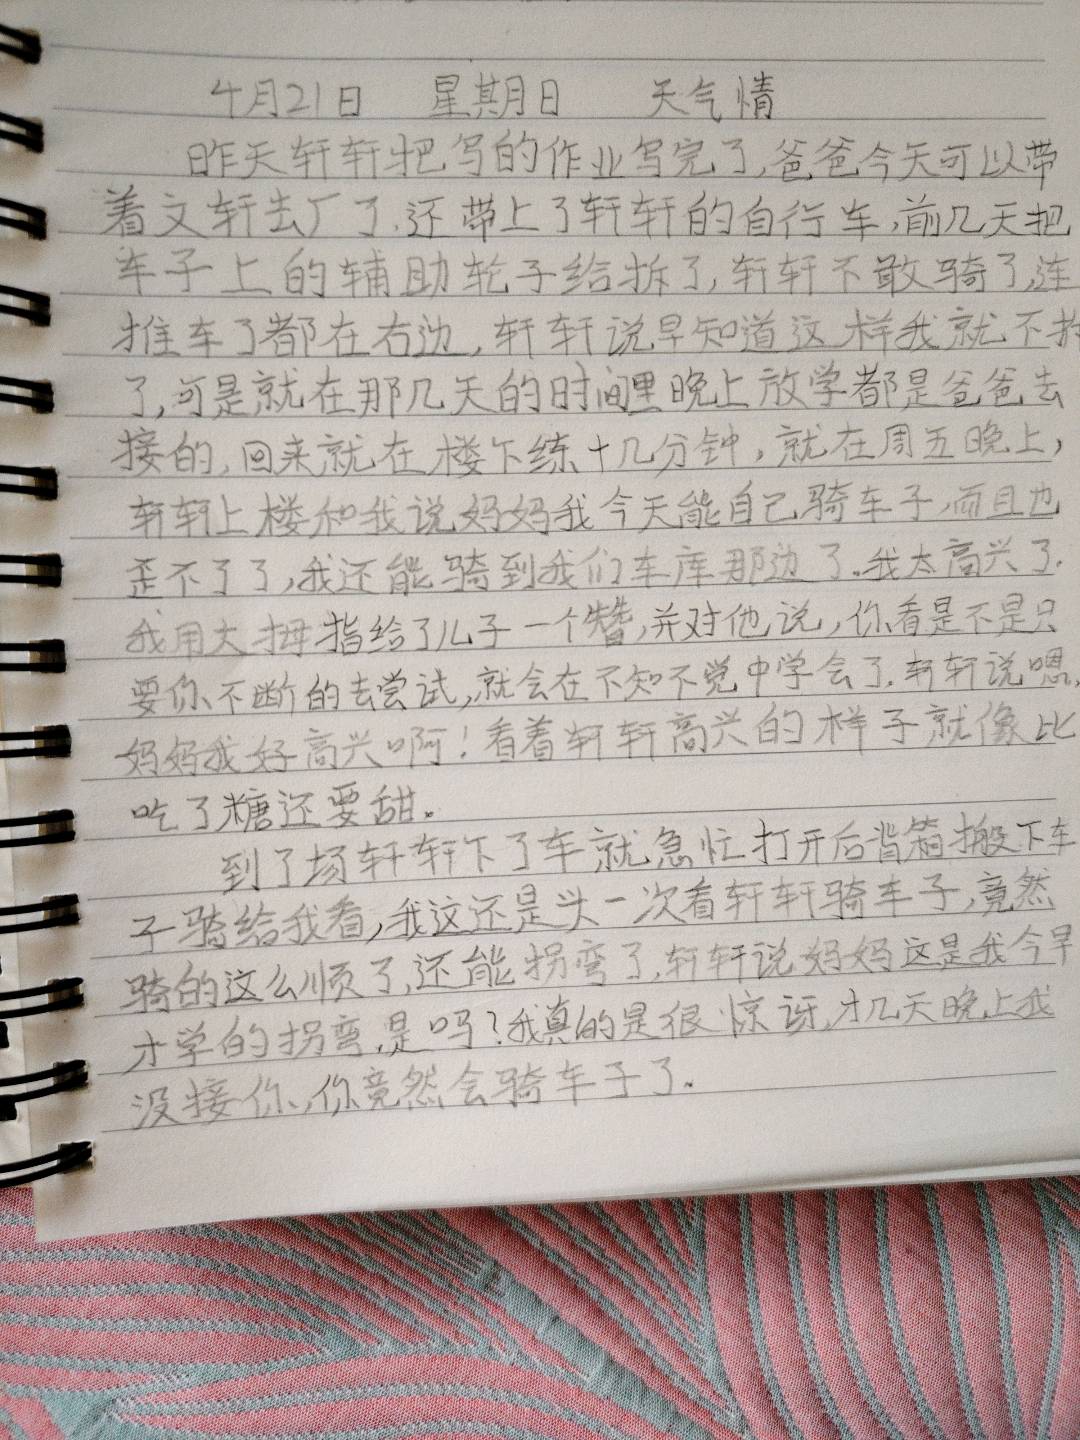 4月21日 星期日 天气情
昨天轩轩把写的作业写完了,爸爸今天可以带
着文轩去厂了.还带上了轩轩的自行车,前几天把
车子上的辅助轮子给拆了,轩轩不敢骑了,连
推车了都在右边,轩轩说早知道这样我就不拆
了,可是就在那几天的时间里晚上放学都是爸爸去
接的,回来就在楼下练十几分钟,就在周五晚上,
轩轩上楼和我说妈妈我今天能自己骑车子,而且也
歪不了了,我还能骑到我们车库那边了。我太高兴了.
我用大拇指给了儿子一个赞,并对他说,你看是不是只
要你不断的去尝试,就会在不知不觉中学会了.轩轩说嗯,
妈妈我好高兴啊!看着轩轩高兴的样子就像比
吃了糖还要甜。
到了场轩轩下了车就急忙打开后背箱搬下车
子骑给我看,我这还是头一次看轩轩骑车子,竟然
骑的这么顺了,还能拐弯了,轩轩说妈妈这是我今早
才学的拐弯,是吗?我真的是很惊讶,才几天晚上我
没接你,你竟然会骑车子了。